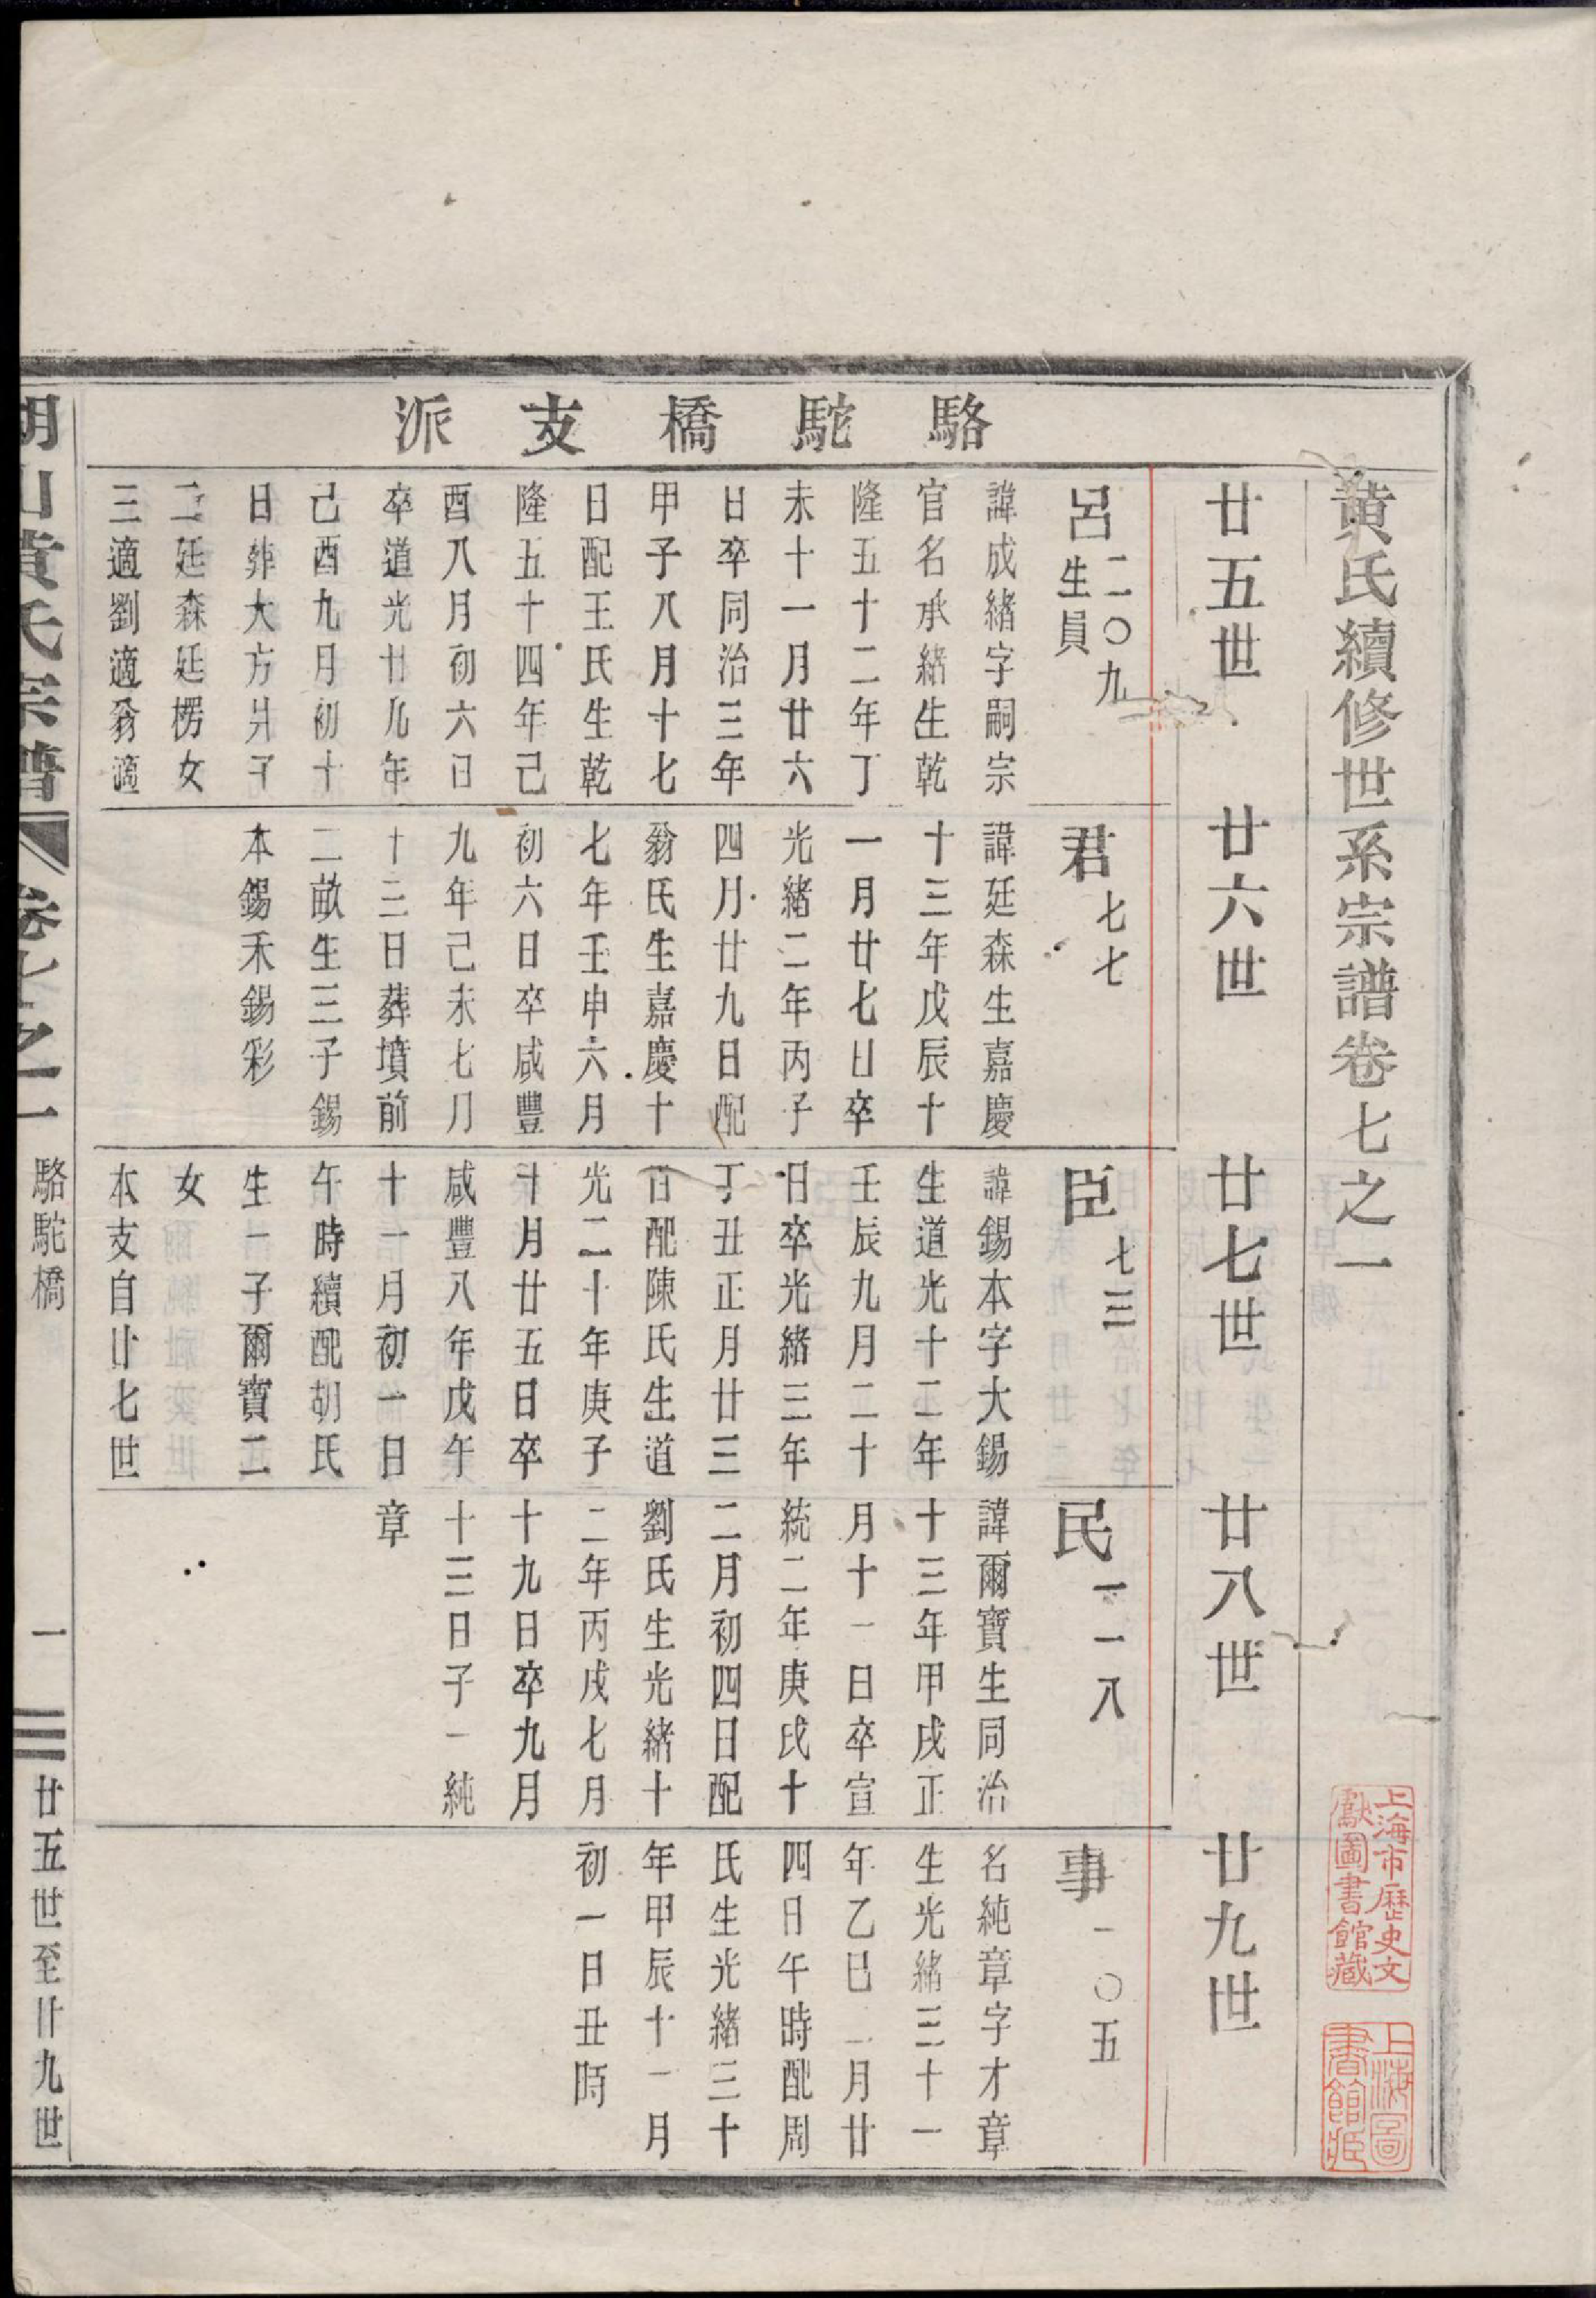 黄氏續修世系宗譜卷七之一
上海市歷史文
獻圖書館藏
上海圖
書館藏
駱駝橋支派
廿五世
廿六世
廿七世
廿八世
廿九世
呂二〇九
生員
諱成緒字嗣宗
官名承緒生乾
隆五十二年丁
未十一月廿六
日卒同治三年
甲子八月十七
日配王氏生乾
隆五十四年己
酉八月初六日
卒道光廿九年
己酉九月初十
日葬大方爿子
二廷森廷楞女
三適劉適翁適
君七七
諱廷森生嘉慶
十三年戊辰十
一月廿七日卒
光緒二年丙子
四月廿九日配
翁氏生嘉慶十
七年壬申六月
初六日卒咸豐
九年己未七月
十三日葬墳前
二畝生三子錫
本錫禾錫彩
臣七三
諱錫本字大錫
生道光十二年
壬辰九月二十
日卒光緒三年
丁丑正月廿三
日配陳氏生道
光二十年庚子
十月廿五日卒
咸豐八年戊午
十一月初一日
午時續配胡氏
生一子爾寶二
女
本支自廿七世
民一一八
諱爾寶生同治
十三年甲戌正
月十一日卒宣
統二年庚戌十
二月初四日配
劉氏生光緒十
二年丙戌七月
十九日卒九月
十三日子一純
章
事一〇五
名純章字才章
生光緒三十一
年乙巳二月廿
四日午時配周
氏生光緒三十
年甲辰十一月
初一日丑時
山黃氏宗譜
卷七之一
駱駝橋
一
廿五世至廿九世